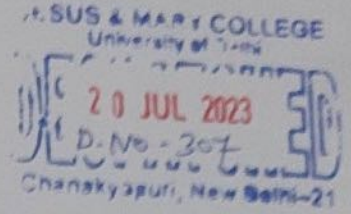 JESUS & MARY COLLEGE
University of Delhi
20 JUL 2023
D. No - 307
Chanakyapuri, New Delhi-21